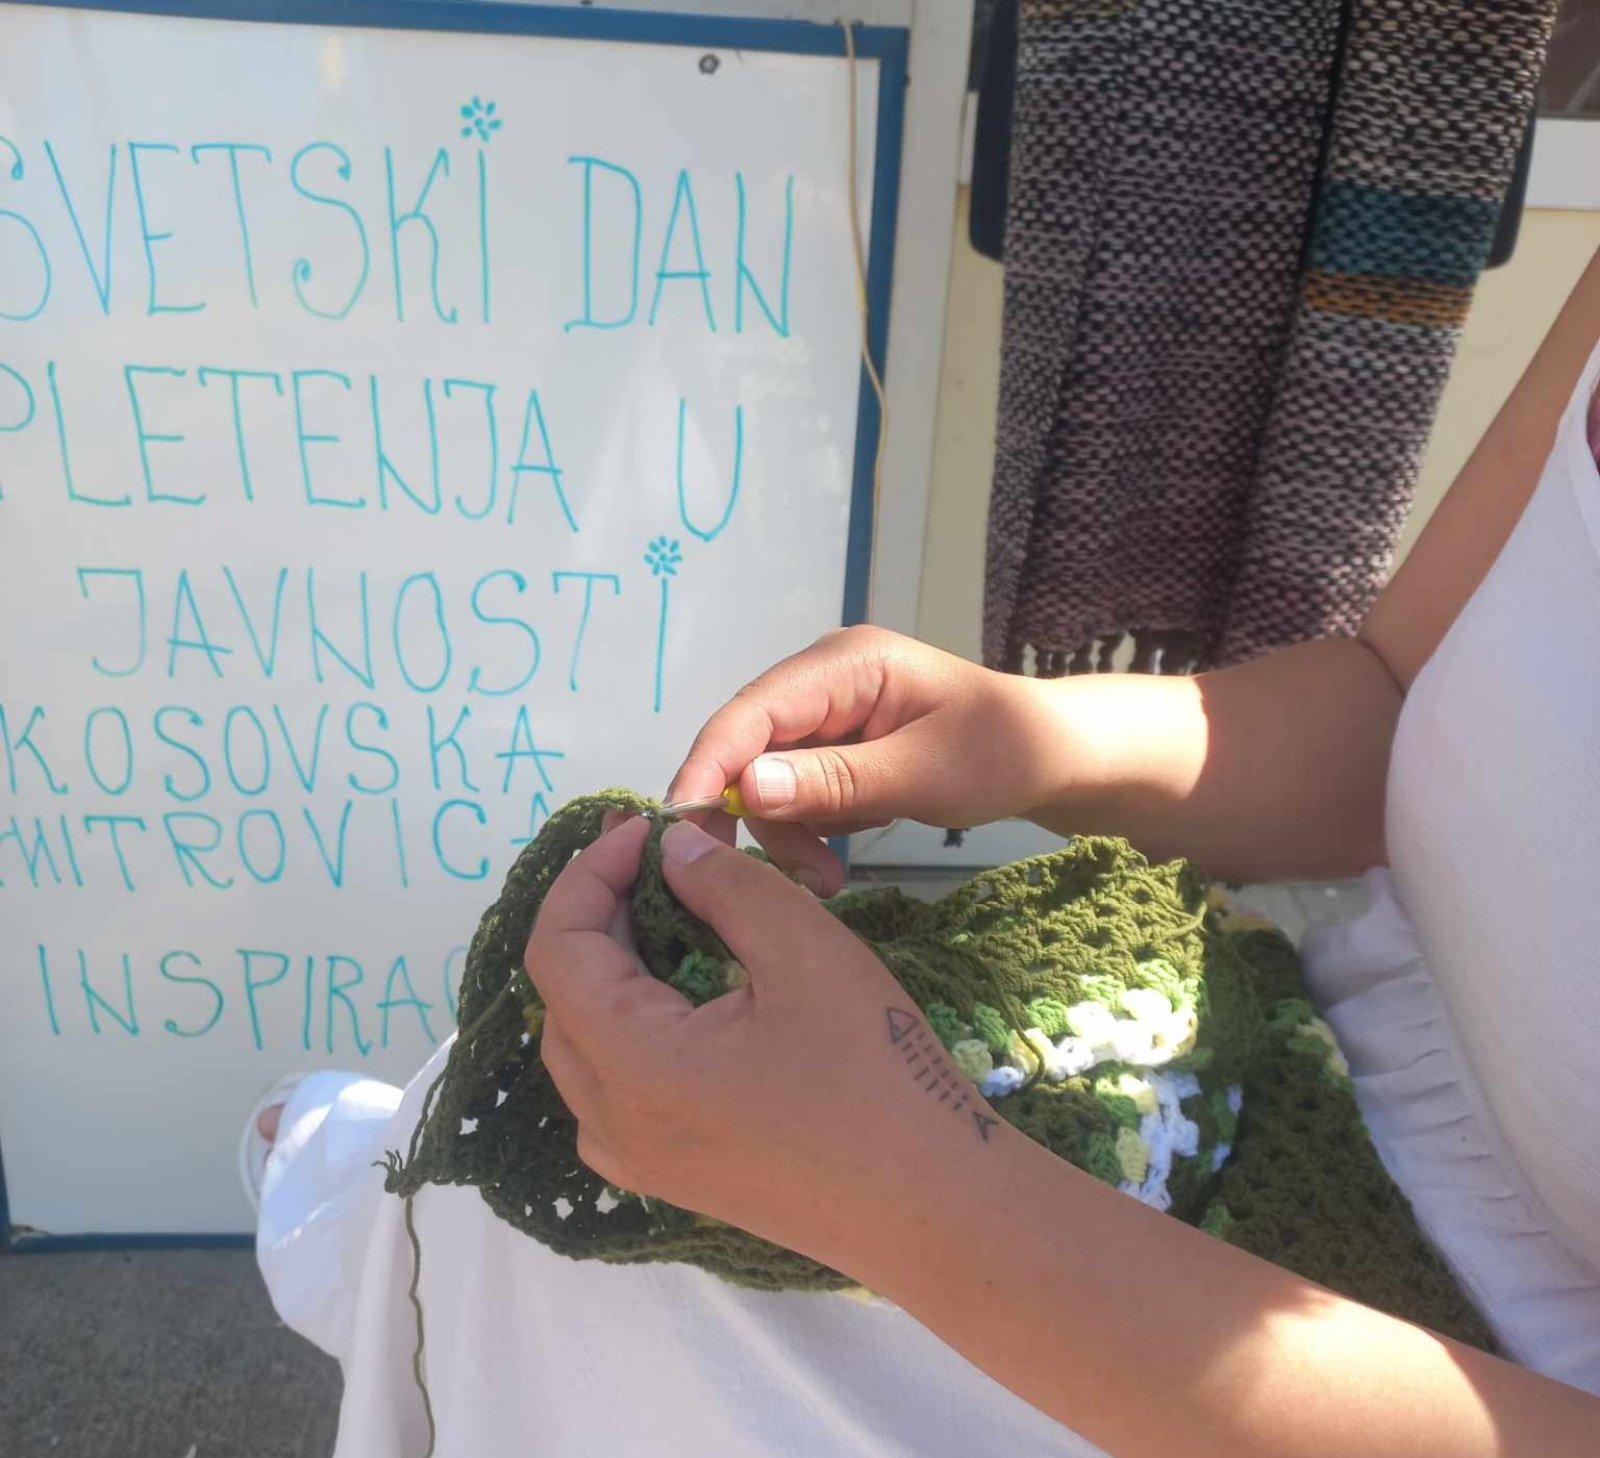 SVETSKI DAN
PLETENJA U
JAVNOSTI
KOSOVSKA
MITROVICA